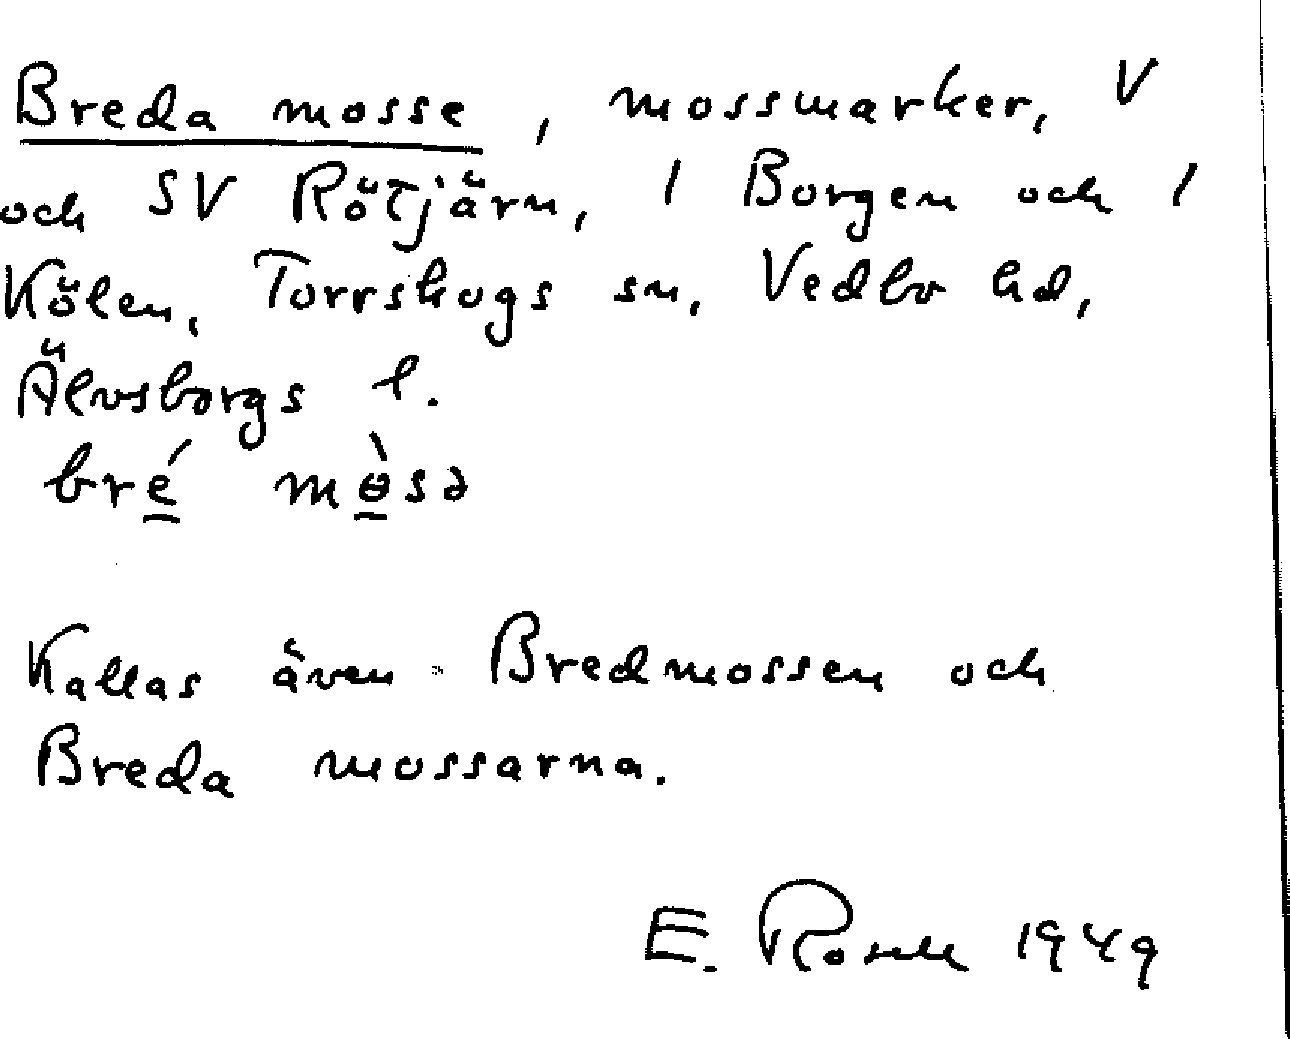 Breda mosse, mossmarker, V
och SV Rötjärn, 1 Borgen och 1
Kölen, Torrskogs sn, Vedbo hd,
Älvsborgs l.
bré mɵ̀sə
Kallas även Bredmossen och
Breda mossarna.
E. 1949